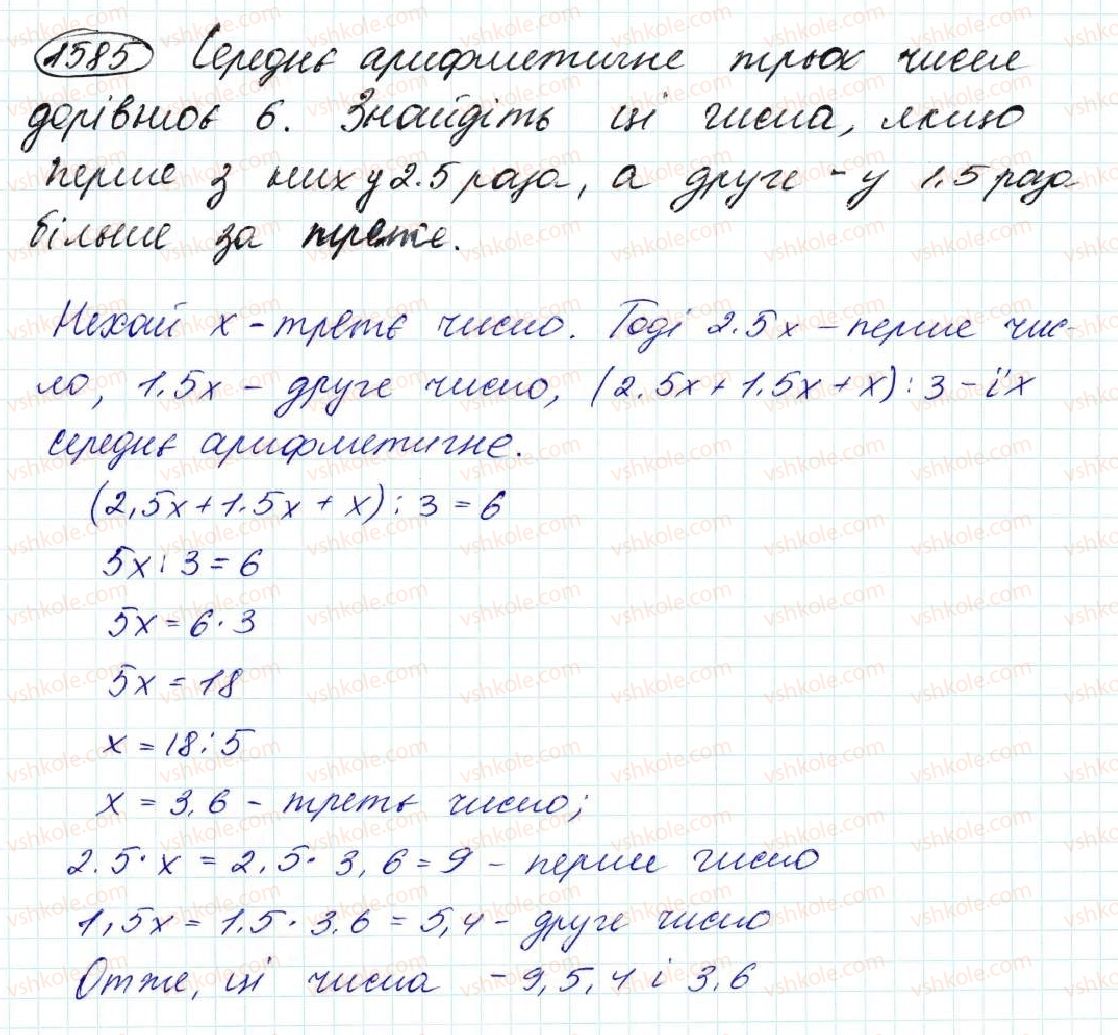 1585 Середнє арифметичне трьох чисел
дорівнює 6. Знайдіть ці числа, якщо
перше з них у 2.5 раза, а друге - у 1,5 раза
більше за третє.
Нехай x - третє число. Тоді 2.5x - перше чис-
ло, 1.5x - друге число, (2.5x + 1.5x + x) : 3 - їх
середнє арифметичне.
(2,5x + 1.5x + x) : 3 = 6
5x : 3 = 6
5x = 6 · 3
5x = 18
x = 18 : 5
x = 3,6 - третє число;
2.5 · x = 2,5 · 3,6 = 9 - перше число
1,5x = 1.5 · 3.6 = 5,4 - друге число
Отже, ці числа - 9, 5,4 і 3,6